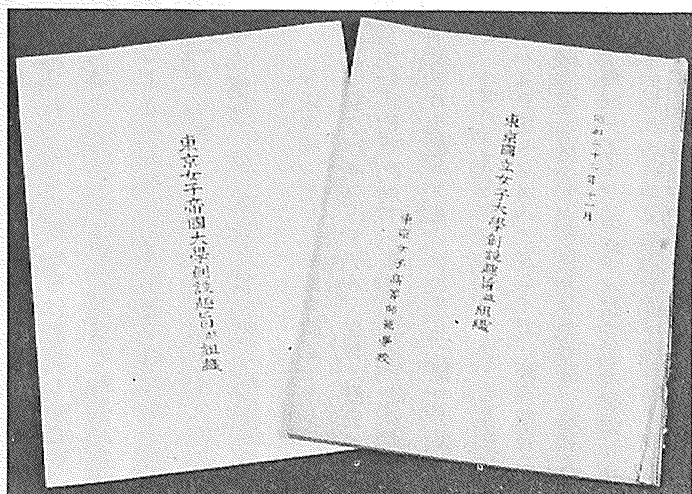 東京女子帝國大學創設趣旨並組織
昭和二十一年十一月
東京國立女子大學創設趣旨並組織
東京女子高等師範學校